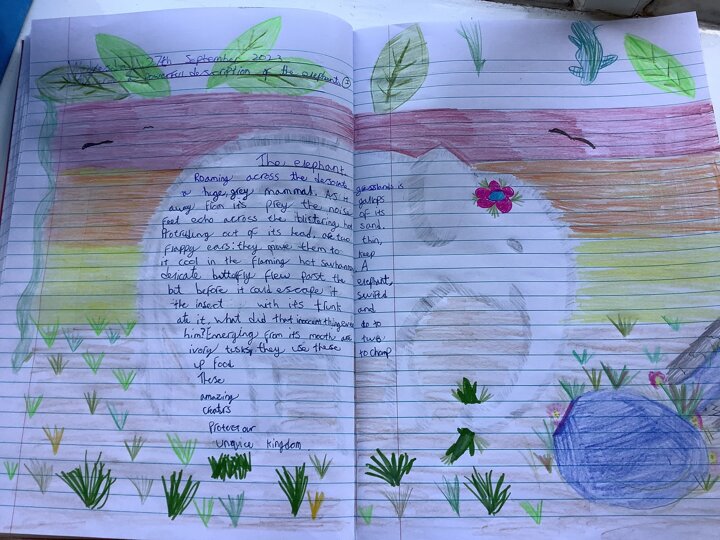 27th September 2023
A powerful description of the elephants
The elephant
Roaming across the desolate grasslands is
a huge, grey mammal. As it gallops
away from its prey the noise of its
feet echo across the blistering hot sand.
Protruding out of its head, are two thin,
flappy ears: they move them to keep
it cool in the flaming hot savhanna A
delicate butterfly flew parst the elephant,
but before it could escape it swifted
the insect with its trunk and
ate it. What did that innocent thing do to
him? Emerging from its mouth are two
ivory tusks, they use these to chomp
up food
These
amazing
creators
Protect our
unquice kingdom